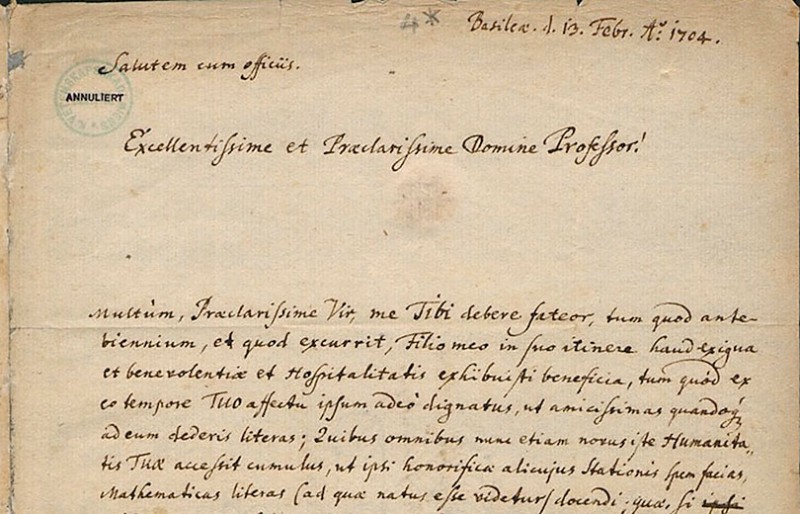 Basileæ. d. 13. Febr. Aº. 1704.
Salutem cum officiis.
ANNULIERT
Excellentissime et Præclarissime Domine Professor!
Multùm, Præclarissime Vir, me Tibi debere fateor, tum quod ante-
biennium, et quod excurrit, Filio meo in suo itinere haud exigua
et benevolentiæ et Hospitalitatis exhibuisti beneficia, tum quód ex
eo tempore TUO affectu ipsum adeò dignatus, ut amicissimas quandoq́
ad eum dederis literas; Quibus omnibus nunc etiam novus iste Humanita„
tis TUÆ accessit cumulus, ut ipsi honorificæ alicujus Stationis spem facias,
Mathematicas literas (ad quæ natus esse videtur) docendi; quæ, si